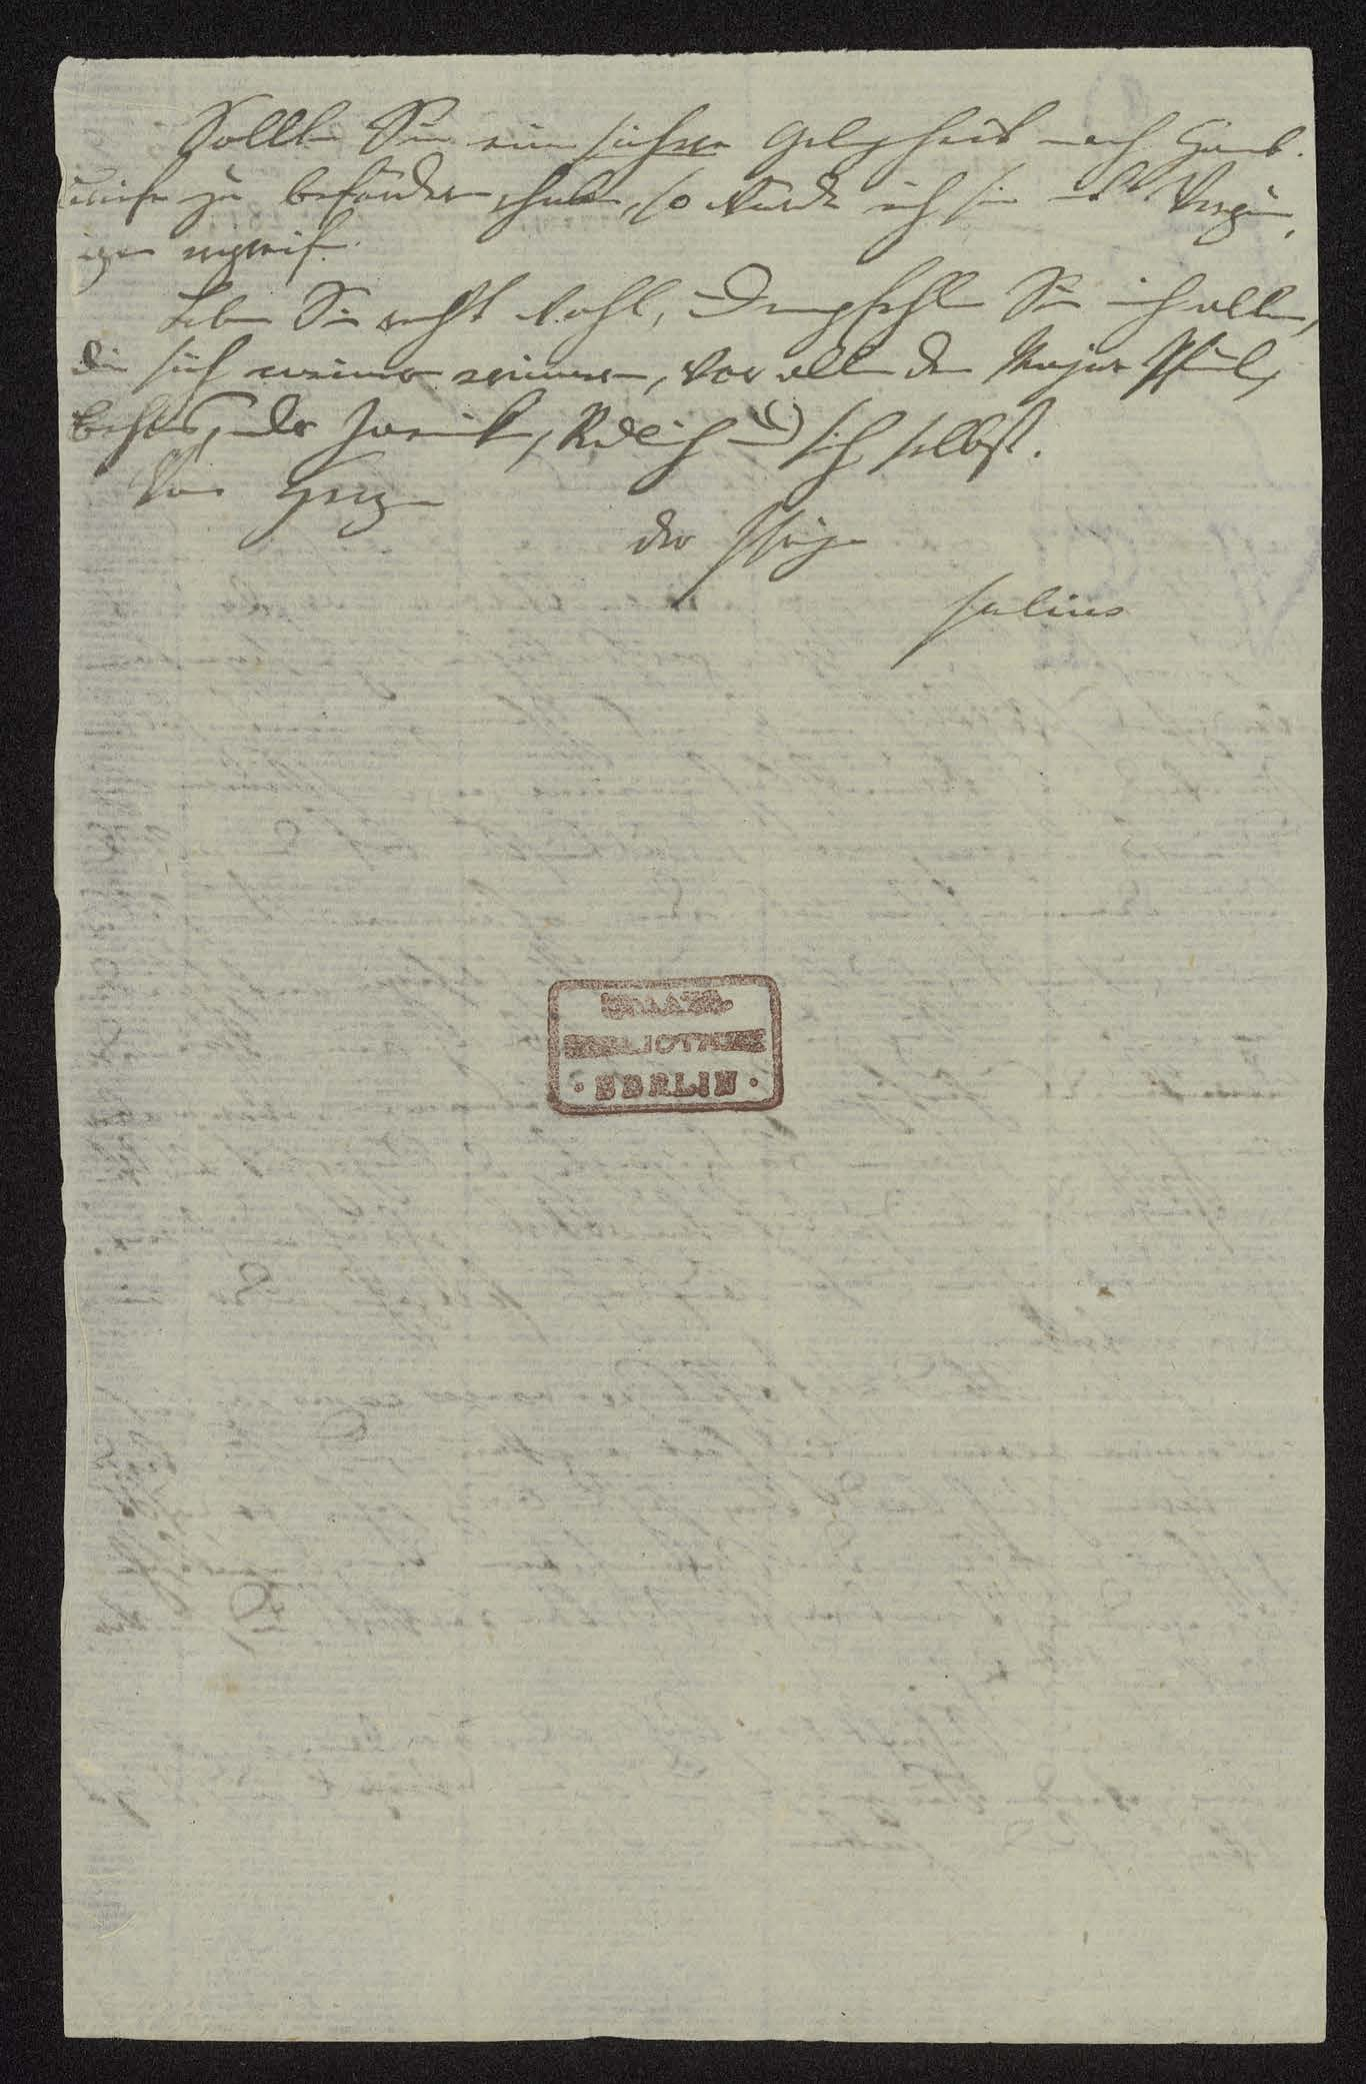 Sollten Sie eine sichere Gelegenheit nach Hamb.
Briefe zu befördern haben, so würde ich sie mit Vergnü-
gen ergreifen.
Leben Sie recht wohl, u empfehlen Sie mich allen,
die sich meiner erinnern, vor allen dem Major Pfuel,
der Familie, Redlich u sich selbst.
Von Herzen
der Ihrige
Julius
STAATS-
BIBLIOTHEK
· BERLIN ·